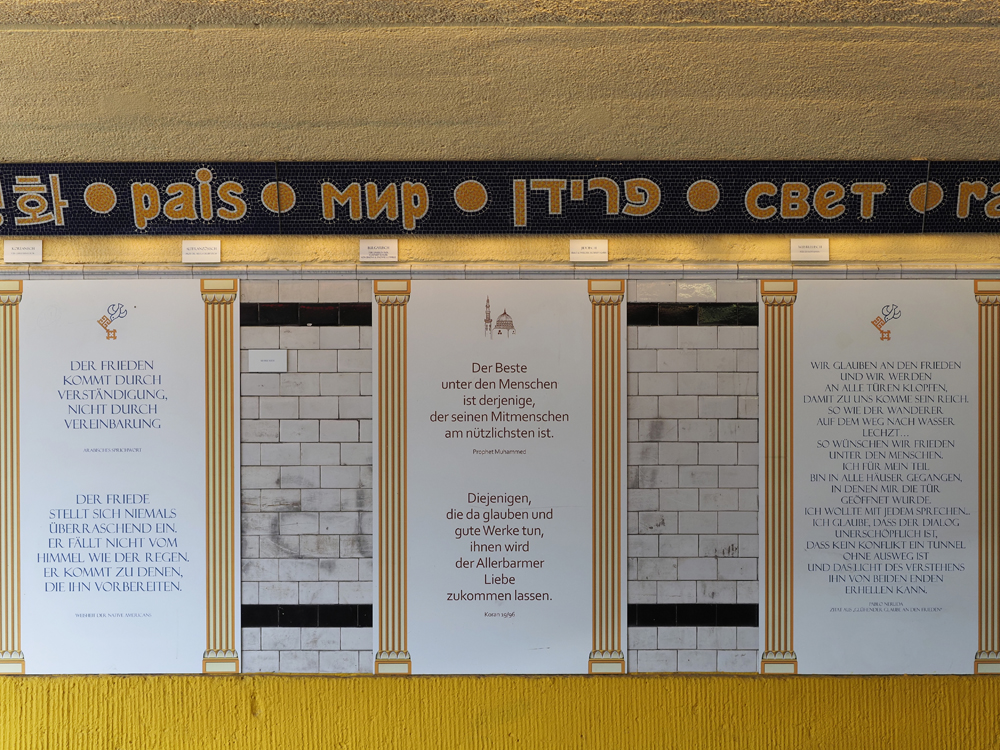 화 pais мир פרידן свет ra
DER FRIEDEN
KOMMT DURCH
VERSTÄNDIGUNG,
NICHT DURCH
VEREINBARUNG
ARABISCHES SPRICHWORT
DER FRIEDE
STELLT SICH NIEMALS
ÜBERRASCHEND EIN.
ER FÄLLT NICHT VOM
HIMMEL WIE DER REGEN.
ER KOMMT ZU DENEN,
DIE IHN VORBEREITEN.
WEISHEIT DER NATIVE AMERICANS
Der Beste
unter den Menschen
ist derjenige,
der seinen Mitmenschen
am nützlichsten ist.
Prophet Muhammed
Diejenigen,
die da glauben und
gute Werke tun,
ihnen wird
der Allerbarmer
Liebe
zukommen lassen.
Koran 19/96
WIR GLAUBEN AN DEN FRIEDEN
UND WIR WERDEN
AN ALLE TÜREN KLOPFEN,
DAMIT ZU UNS KOMME SEIN REICH.
SO WIE DER WANDERER
AUF DEM WEG NACH WASSER
LECHZT...
SO WÜNSCHEN WIR FRIEDEN
UNTER DEN MENSCHEN.
ICH FÜR MEIN TEIL
BIN IN ALLE HÄUSER GEGANGEN,
IN DENEN MIR DIE TÜR
GEÖFFNET WURDE.
ICH WOLLTE MIT JEDEM SPRECHEN...
ICH GLAUBE, DASS DER DIALOG
UNERSCHÖPFLICH IST,
DASS KEIN KONFLIKT EIN TUNNEL
OHNE AUSWEG IST
UND DAS LICHT DES VERSTEHENS
IHN VON BEIDEN ENDEN
ERHELLEN KANN.
PABLO NERUDA